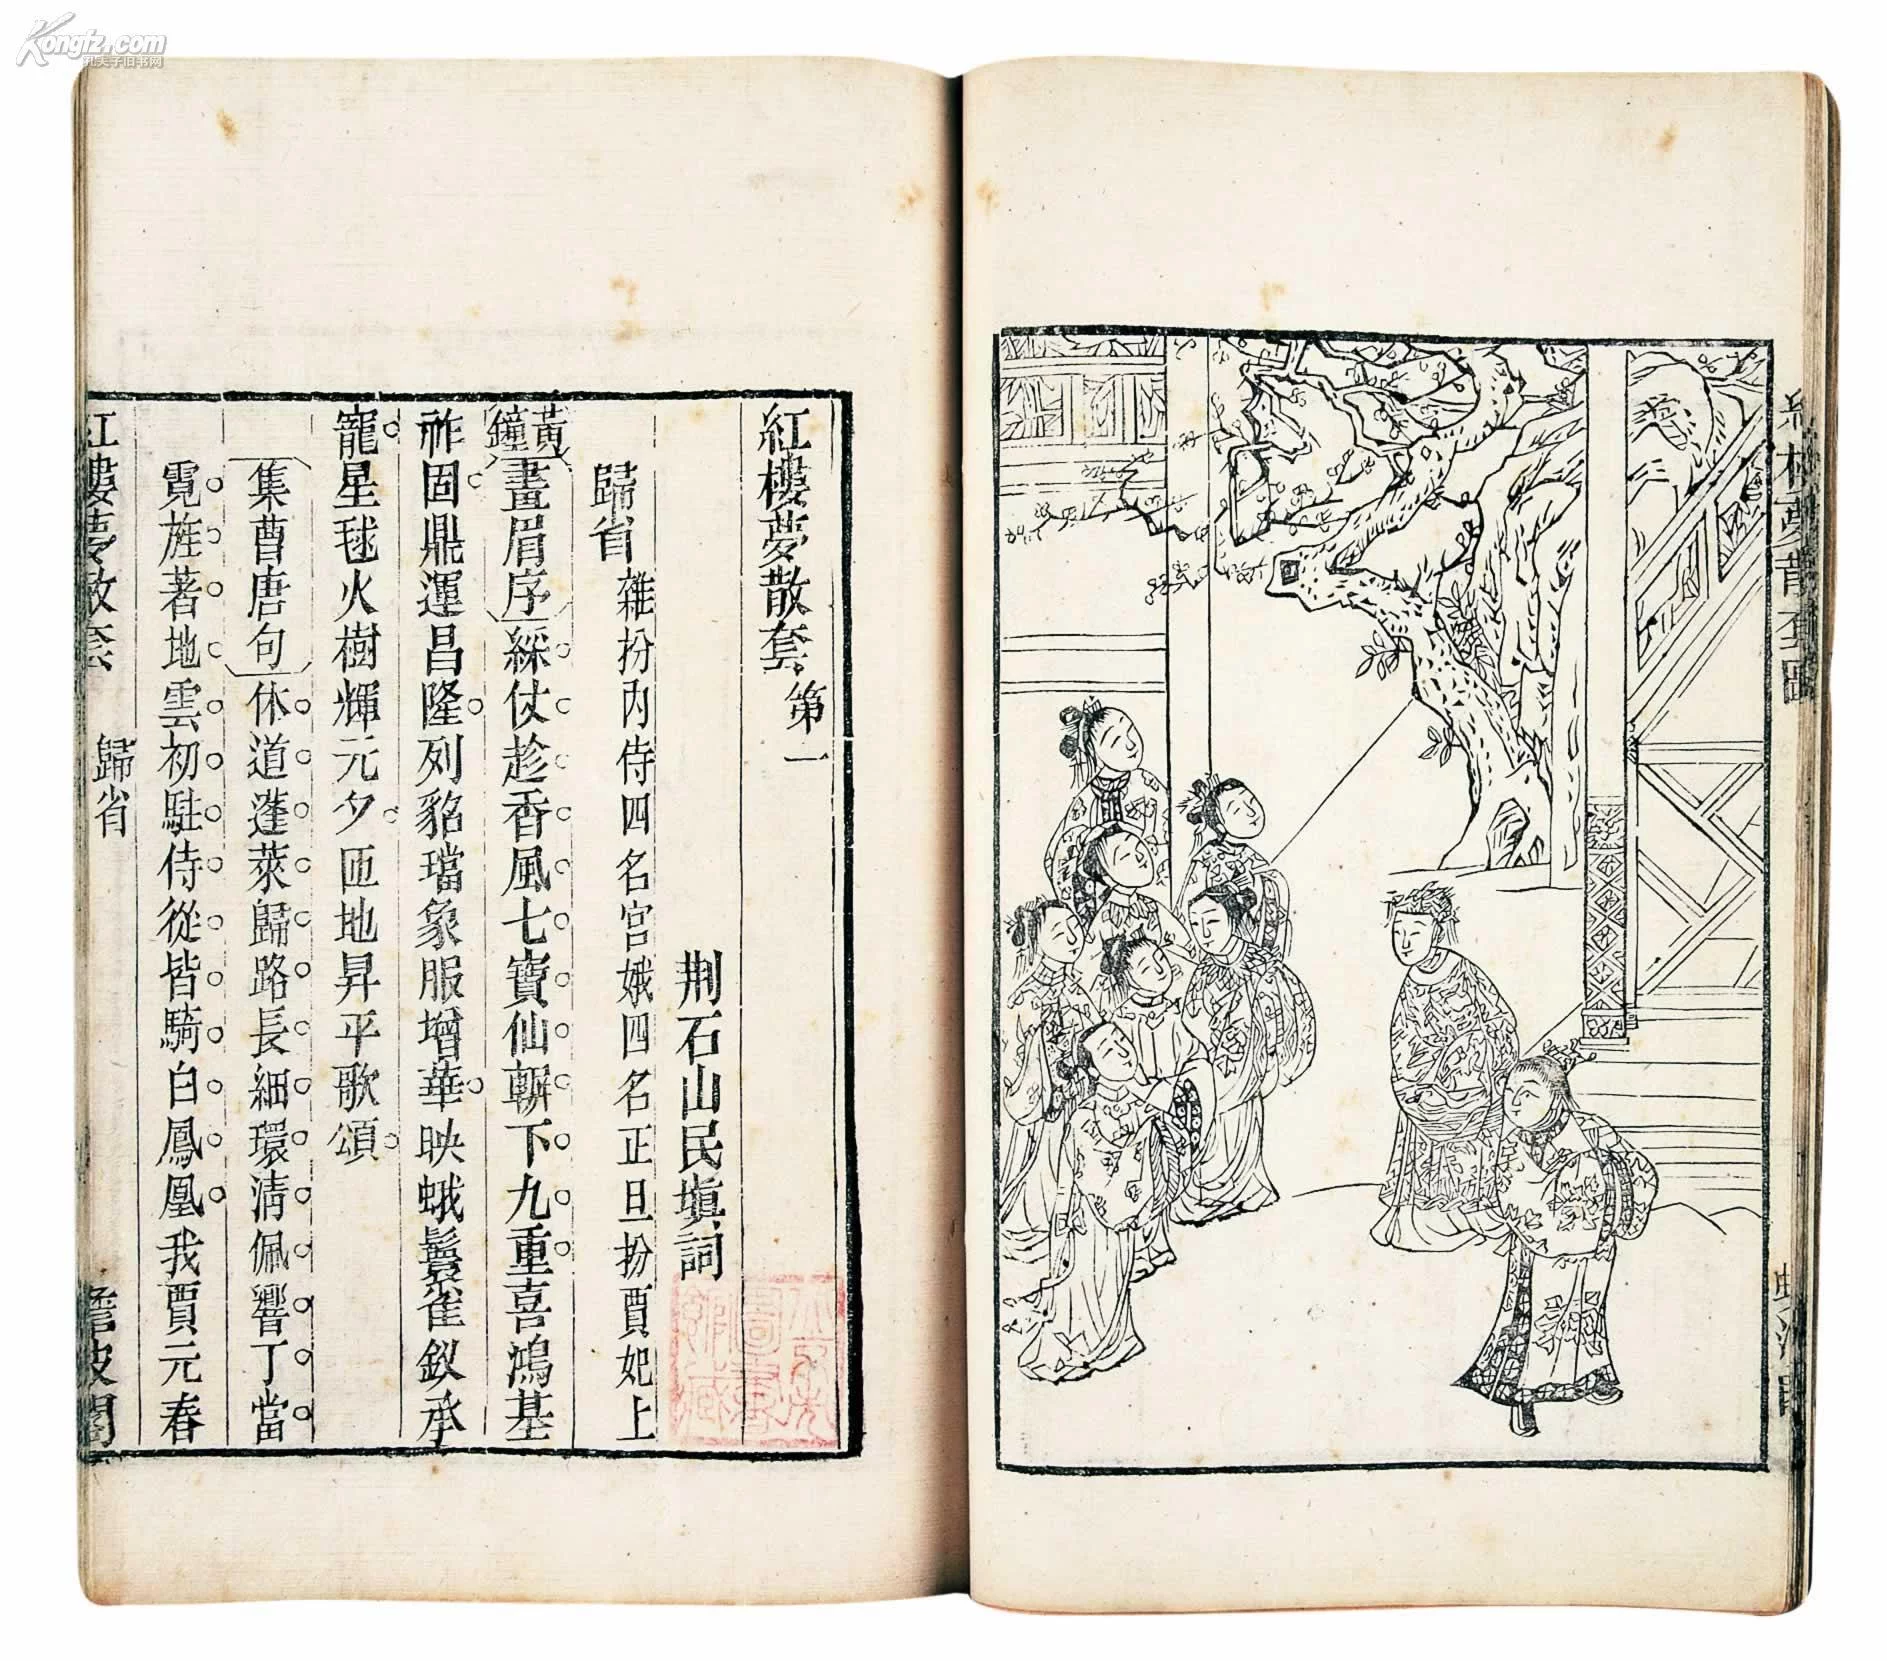 Kongfz.com
孔夫子旧书网
紅樓夢散套
紅樓夢散套 第一
荆石山民塡詞
歸省 雜扮內侍四名宮娥四名正旦扮賈妃上
黃鐘 畫眉序 綵仗趁香風七寶仙輧下九重喜鴻基
祚固鼎運昌隆列貂璫象服增華映蛾鬟雀釵承
寵星毬火樹輝元夕匝地昇平歌頌
集曹唐句 休道蓬萊歸路長細環淸佩響丁當
霓旌著地雲初駐侍從皆騎白鳳凰我賈元春
紅樓夢散套 歸省 波閣